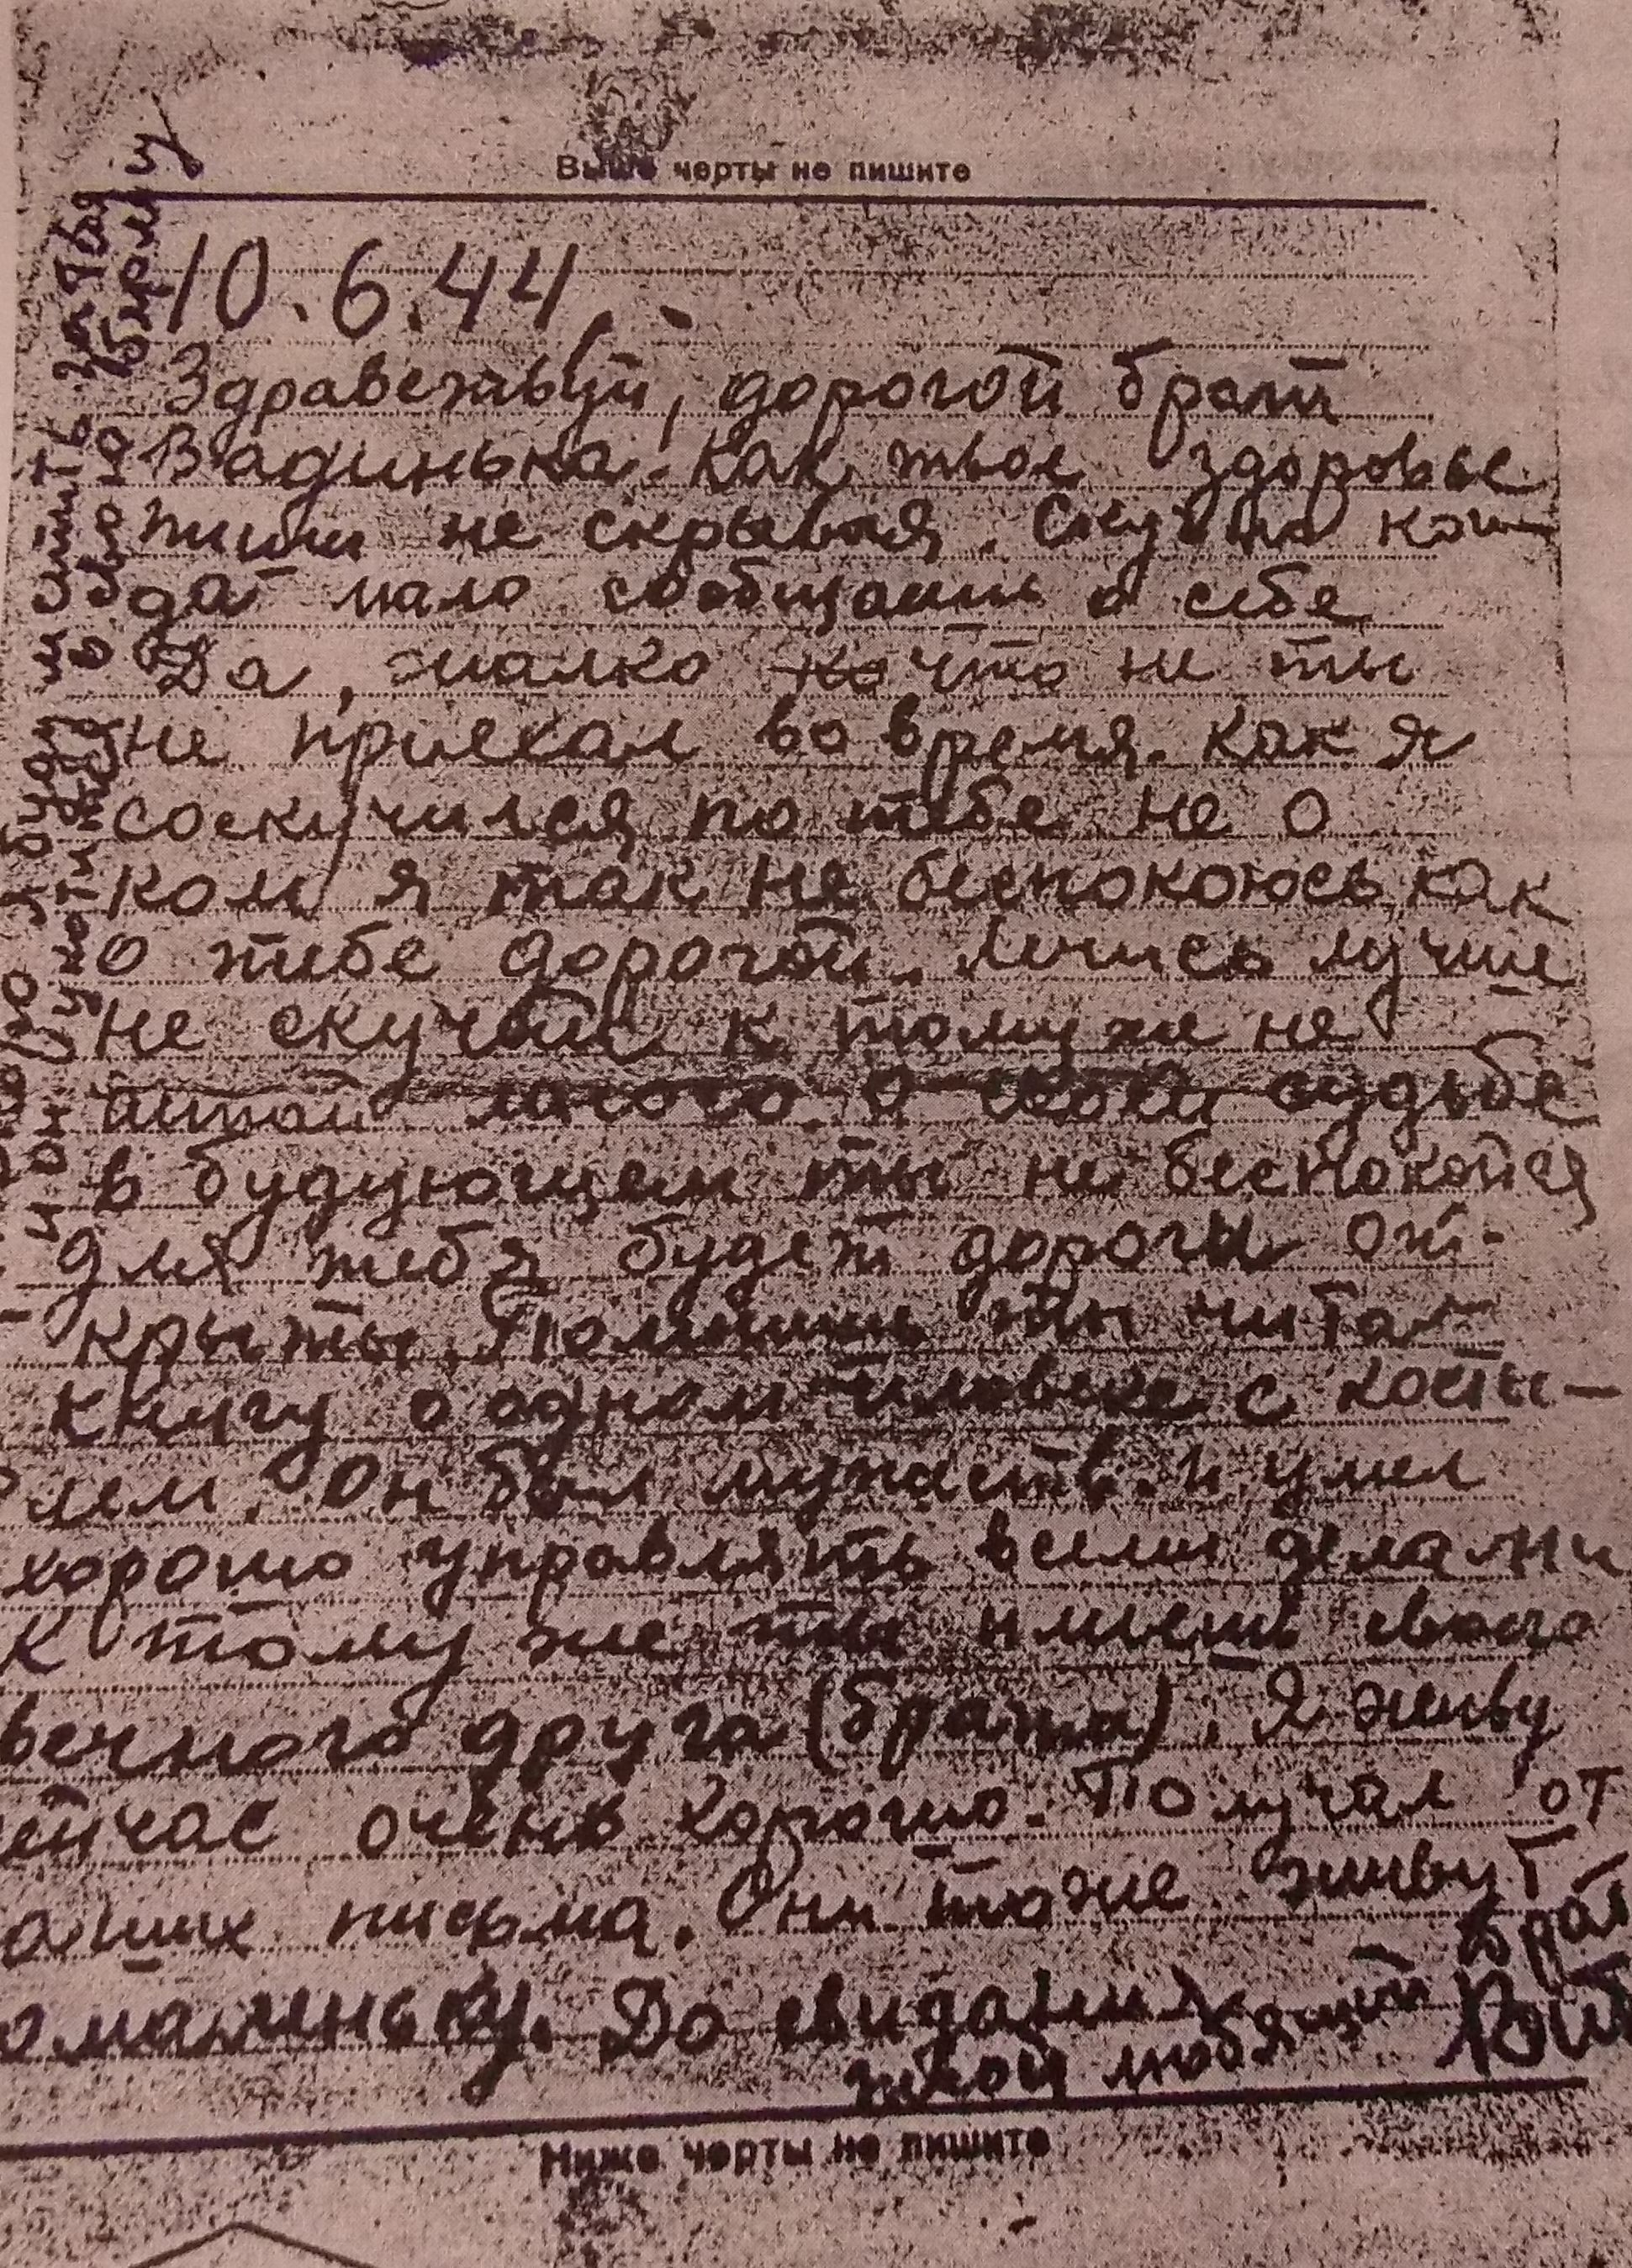 Выше черты не пишите
10.6.44
Здравствуй, дорогой брат
Вадинька. Как твое здоровье
пиши не скрывая. Скучно ког
да мало сообщаешь о себе
Да, жалко что не ты
не приехал во время. Как я
соскучился по тебе не о
ком я так не беспокоюсь как
о тебе дорогой. Лечись лучше
не скучай к тому же не
судьбе
в будующем ты не беспокойся
для тебя будет дороги от-
крыты. Помнишь ты читал
книгу о одном человеке с косты-
лем. Он был мужеств. и умел
хорошо управлять всеми делами
К тому же ты имеешь своего
вечного друга (брата). Я живу
ейчас очень хорошо. Получал от
аших письма. Они тоже живут
омаленьку. До свидания
твой любящий брат
Ниже черты не пишите